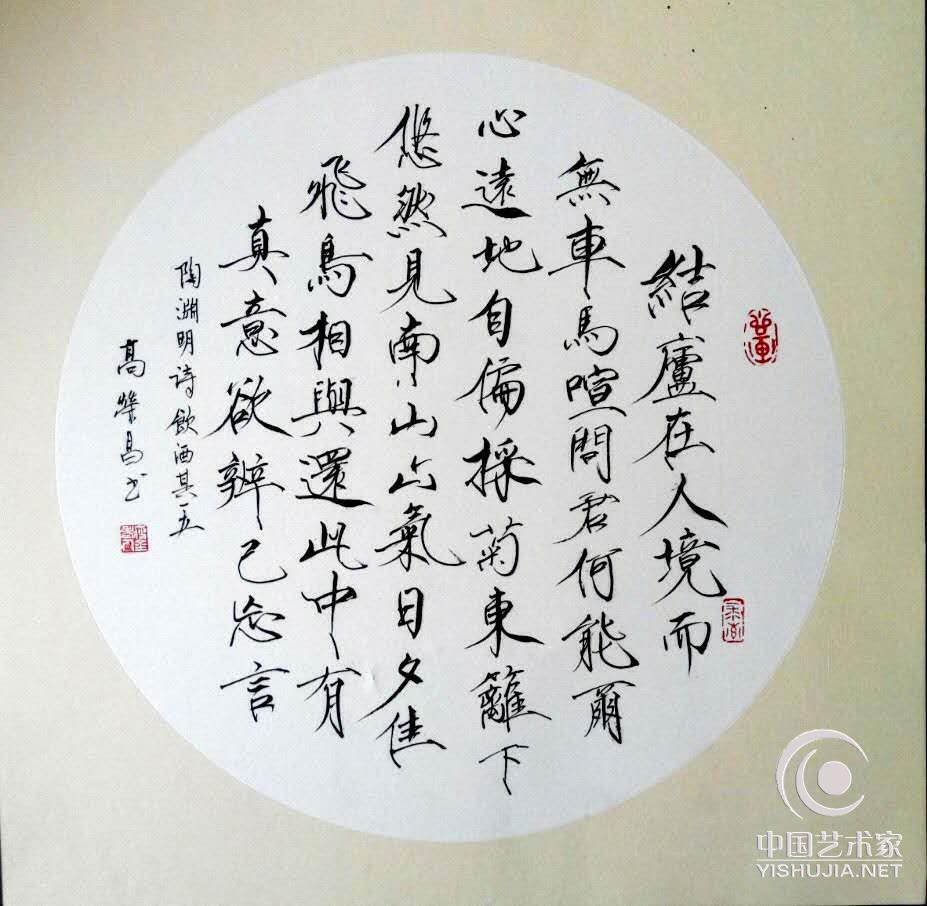 結廬在人境而
無車馬喧問君何能爾
心遠地自偏採菊東籬下
悠然見南山山氣日夕佳
飛鳥相與還此中有
真意欲辨已忘言
陶淵明诗飲酒其五
高榮昌书
中国艺术家
YISHUJIA.NET